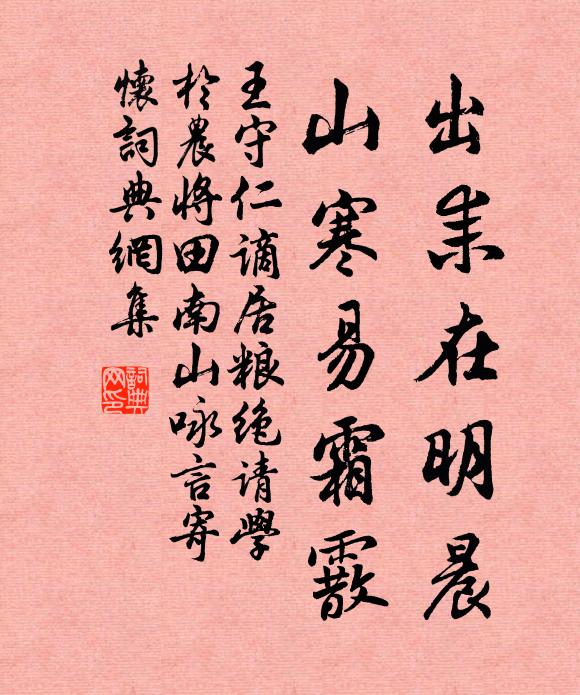 出耒在明晨
山寒易霜霰
王守仁謫居粮绝请學
於農将田南山咏言寄
懷詞典網集
詞典
网印